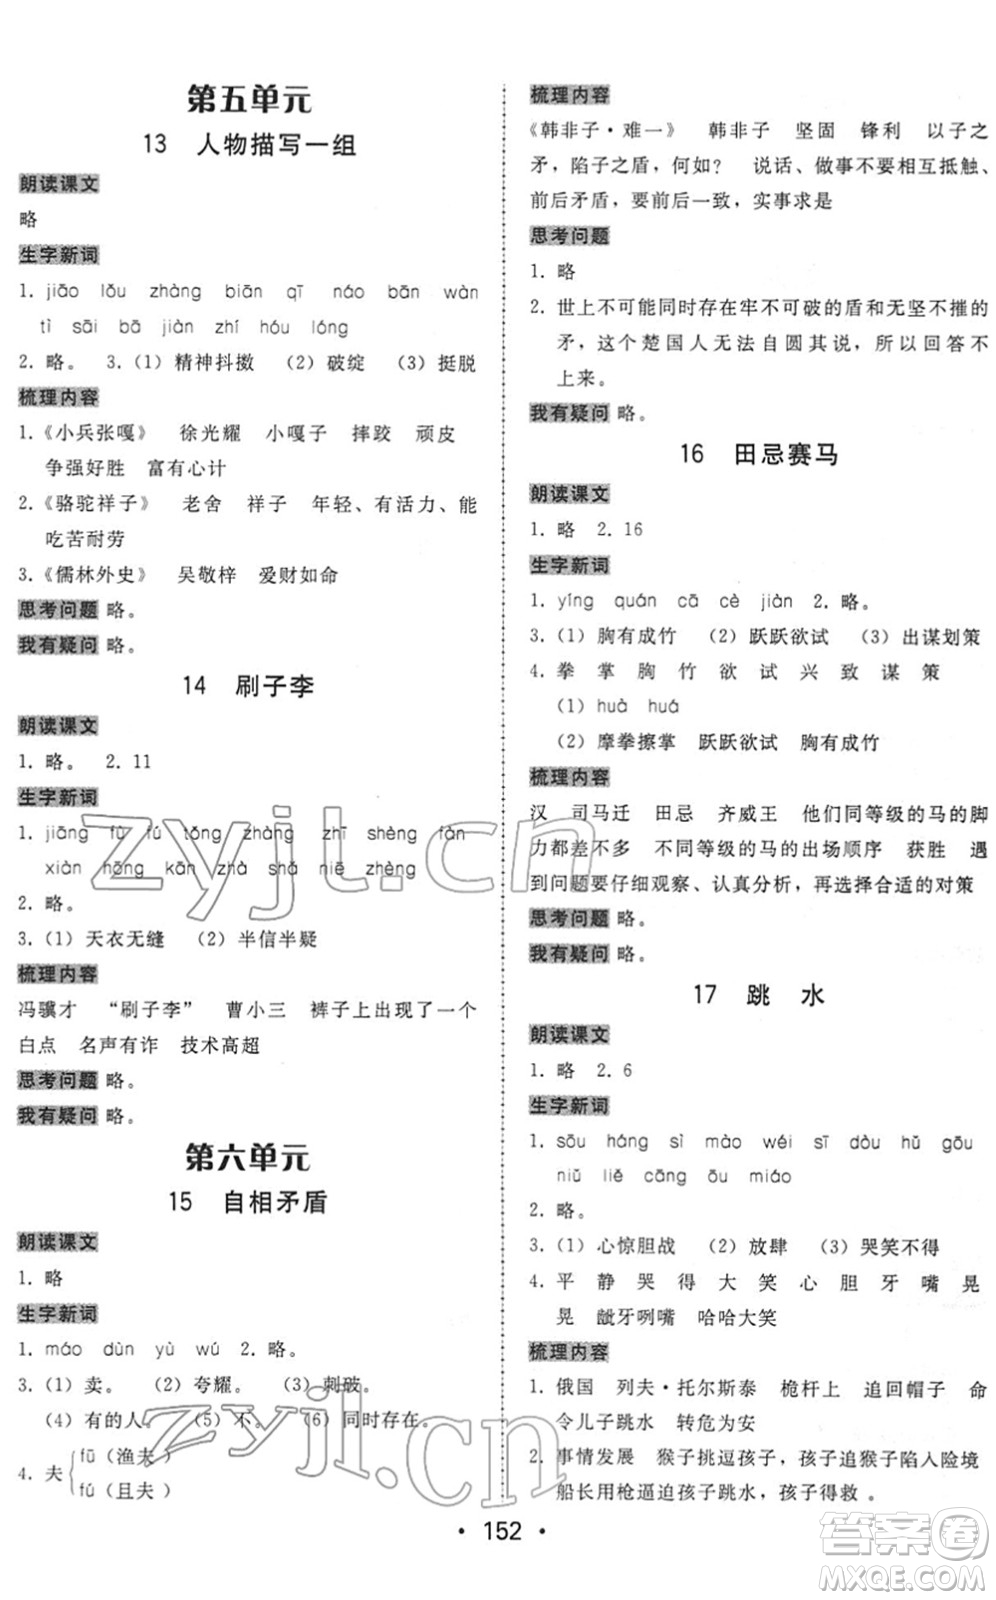 第五单元
13 人物描写一组
朗读课文
略
生字新词
1. jiāo lǒu zhàng biān qī náo bān wàn
tì sāi bā jiàn zhí hóu lóng
2. 略。 3. (1) 精神抖擞 (2) 破绽 (3) 挺脱
梳理内容
1.《小兵张嘎》 徐光耀 小嘎子 摔跤 顽皮
争强好胜 富有心计
2.《骆驼祥子》 老舍 祥子 年轻、有活力、能
吃苦耐劳
3.《儒林外史》 吴敬梓 爱财如命
思考问题 略。
我有疑问 略。
14 刷子李
朗读课文
1. 略。 2. 11
生字新词
1. jiāng fū fú tǒng zhàng zhī shèng fàn
xiàn hōng kān zhà shá niē zhèng
2. 略。
3. (1) 天衣无缝 (2) 半信半疑
梳理内容
冯骥才 “刷子李” 曹小三 裤子上出现了一个
白点 名声有诈 技术高超
思考问题 略。
我有疑问 略。
第六单元
15 自相矛盾
朗读课文
1. 略
生字新词
1. máo dùn yù wú 2. 略。
3. (1) 卖。 (2) 夸耀。 (3) 刺破。
(4) 有的人。 (5) 不。 (6) 同时存在。
4. 夫 fū (渔夫)
fú (且夫)
梳理内容
《韩非子·难一》 韩非子 坚固 锋利 以子之
矛，陷子之盾，何如？ 说话、做事不要相互抵触、
前后矛盾，要前后一致，实事求是
思考问题
1. 略
2. 世上不可能同时存在牢不可破的盾和无坚不摧的
矛，这个楚国人无法自圆其说，所以回答不
上来。
我有疑问 略。
16 田忌赛马
朗读课文
1. 略 2. 16
生字新词
1. yíng quán cā cè jiàn 2. 略。
3. (1) 胸有成竹 (2) 跃跃欲试 (3) 出谋划策
4. 拳 掌 胸 竹 欲 试 兴 致 谋 策
(1) huà huá
(2) 摩拳擦掌 跃跃欲试 胸有成竹
梳理内容
汉 司马迁 田忌 齐威王 他们同等级的马的脚
力都差不多 不同等级的马的出场顺序 获胜 遇
到问题要仔细观察、认真分析，再选择合适的对策
思考问题 略。
我有疑问 略。
17 跳 水
朗读课文
1. 略 2. 6
生字新词
1. sōu háng sì mào wéi sī dòu hǔ gōu
niǔ liē cāng ōu miáo
2. 略。
3. (1) 心惊胆战 (2) 放肆 (3) 哭笑不得
4. 平 静 哭 得 大 笑 心 胆 牙 嘴 晃
晃 龇牙咧嘴 哈哈大笑
梳理内容
1. 俄国 列夫·托尔斯泰 桅杆上 追回帽子 命
令儿子跳水 转危为安
2. 事情发展 猴子挑逗孩子，孩子追猴子陷入险境
船长用枪逼迫孩子跳水，孩子得救。
• 152 •
zyjl.cn
zyjl.cn
答案圈
MXQE.COM